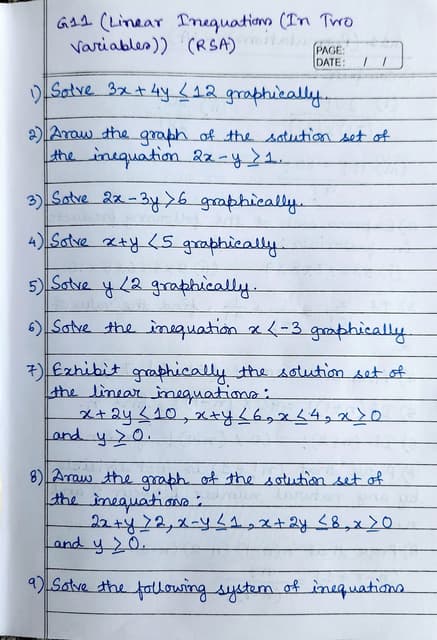 G11 (Linear Inequations (In Two
Variables)) (RSA)
PAGE:
DATE: / /
1) Solve 3x + 4y ≤ 12 graphically.
2) Draw the graph of the solution set of
the inequation 2x - y ≥ 1.
3) Solve 2x - 3y > 6 graphically.
4) Solve x + y < 5 graphically.
5) Solve y < 2 graphically.
6) Solve the inequation x < -3 graphically.
7) Exhibit graphically the solution set of
the linear inequations:
x + 2y ≤ 10, x + y ≤ 6, x ≤ 4, x ≥ 0
and y ≥ 0.
8) Draw the graph of the solution set of
the inequations:
2x + y ≥ 2, x - y ≤ 1, x + 2y ≤ 8, x ≥ 0
and y ≥ 0.
9) Solve the following system of inequations